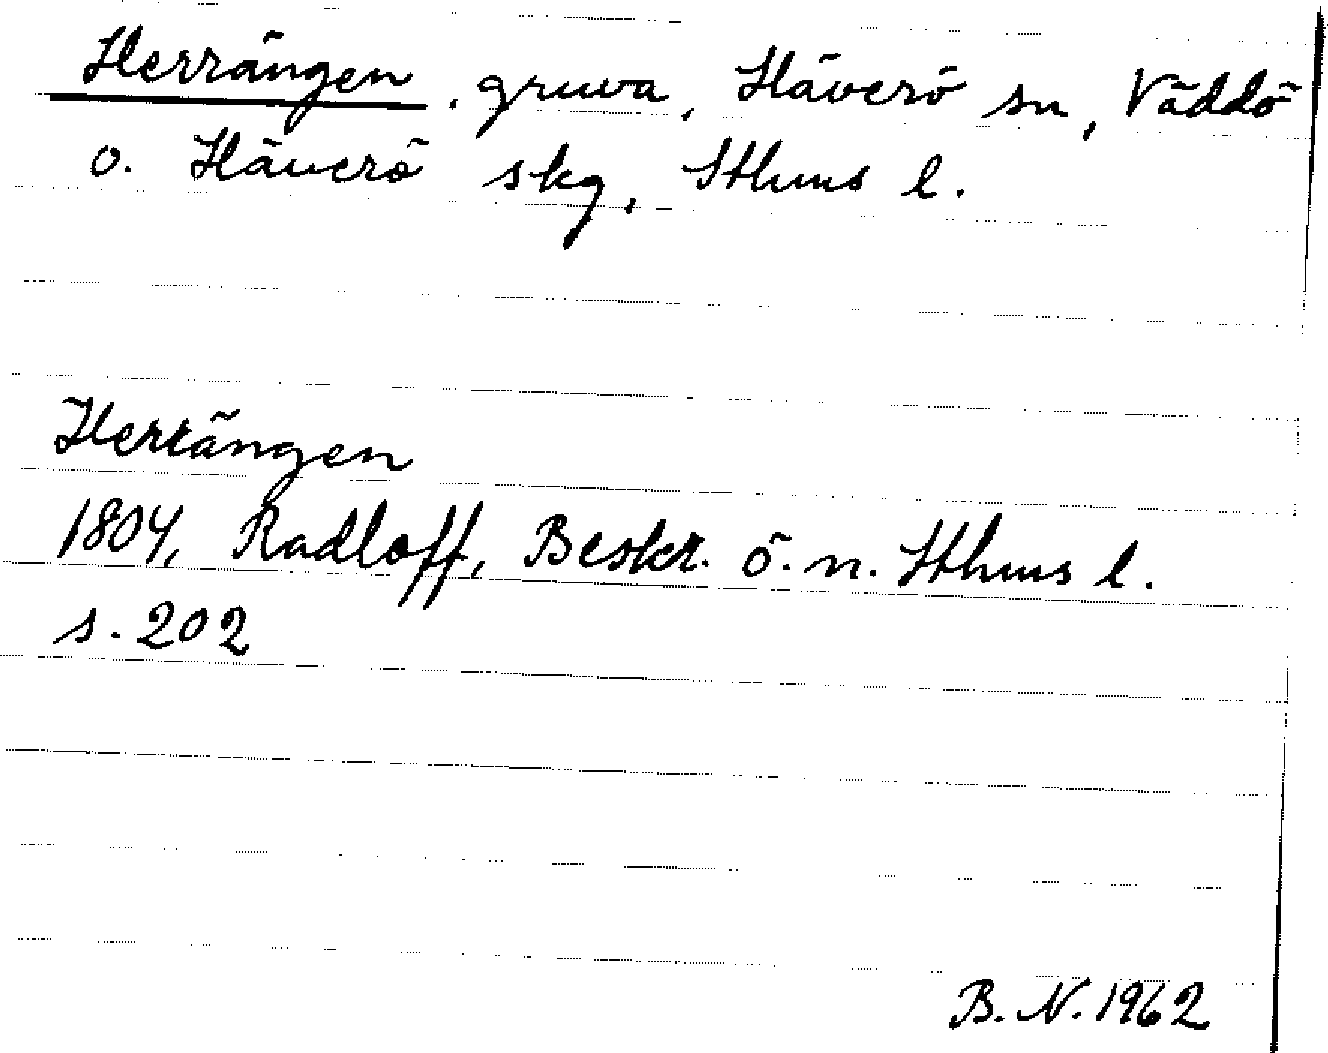 Herrängen, gruva, Häverö sn, Väddö
o. Häverö skg, Sthms l.
Herrängen
1804, Radloff, Beskr. ö. n. Sthms l.
s. 202
B. N. 1962